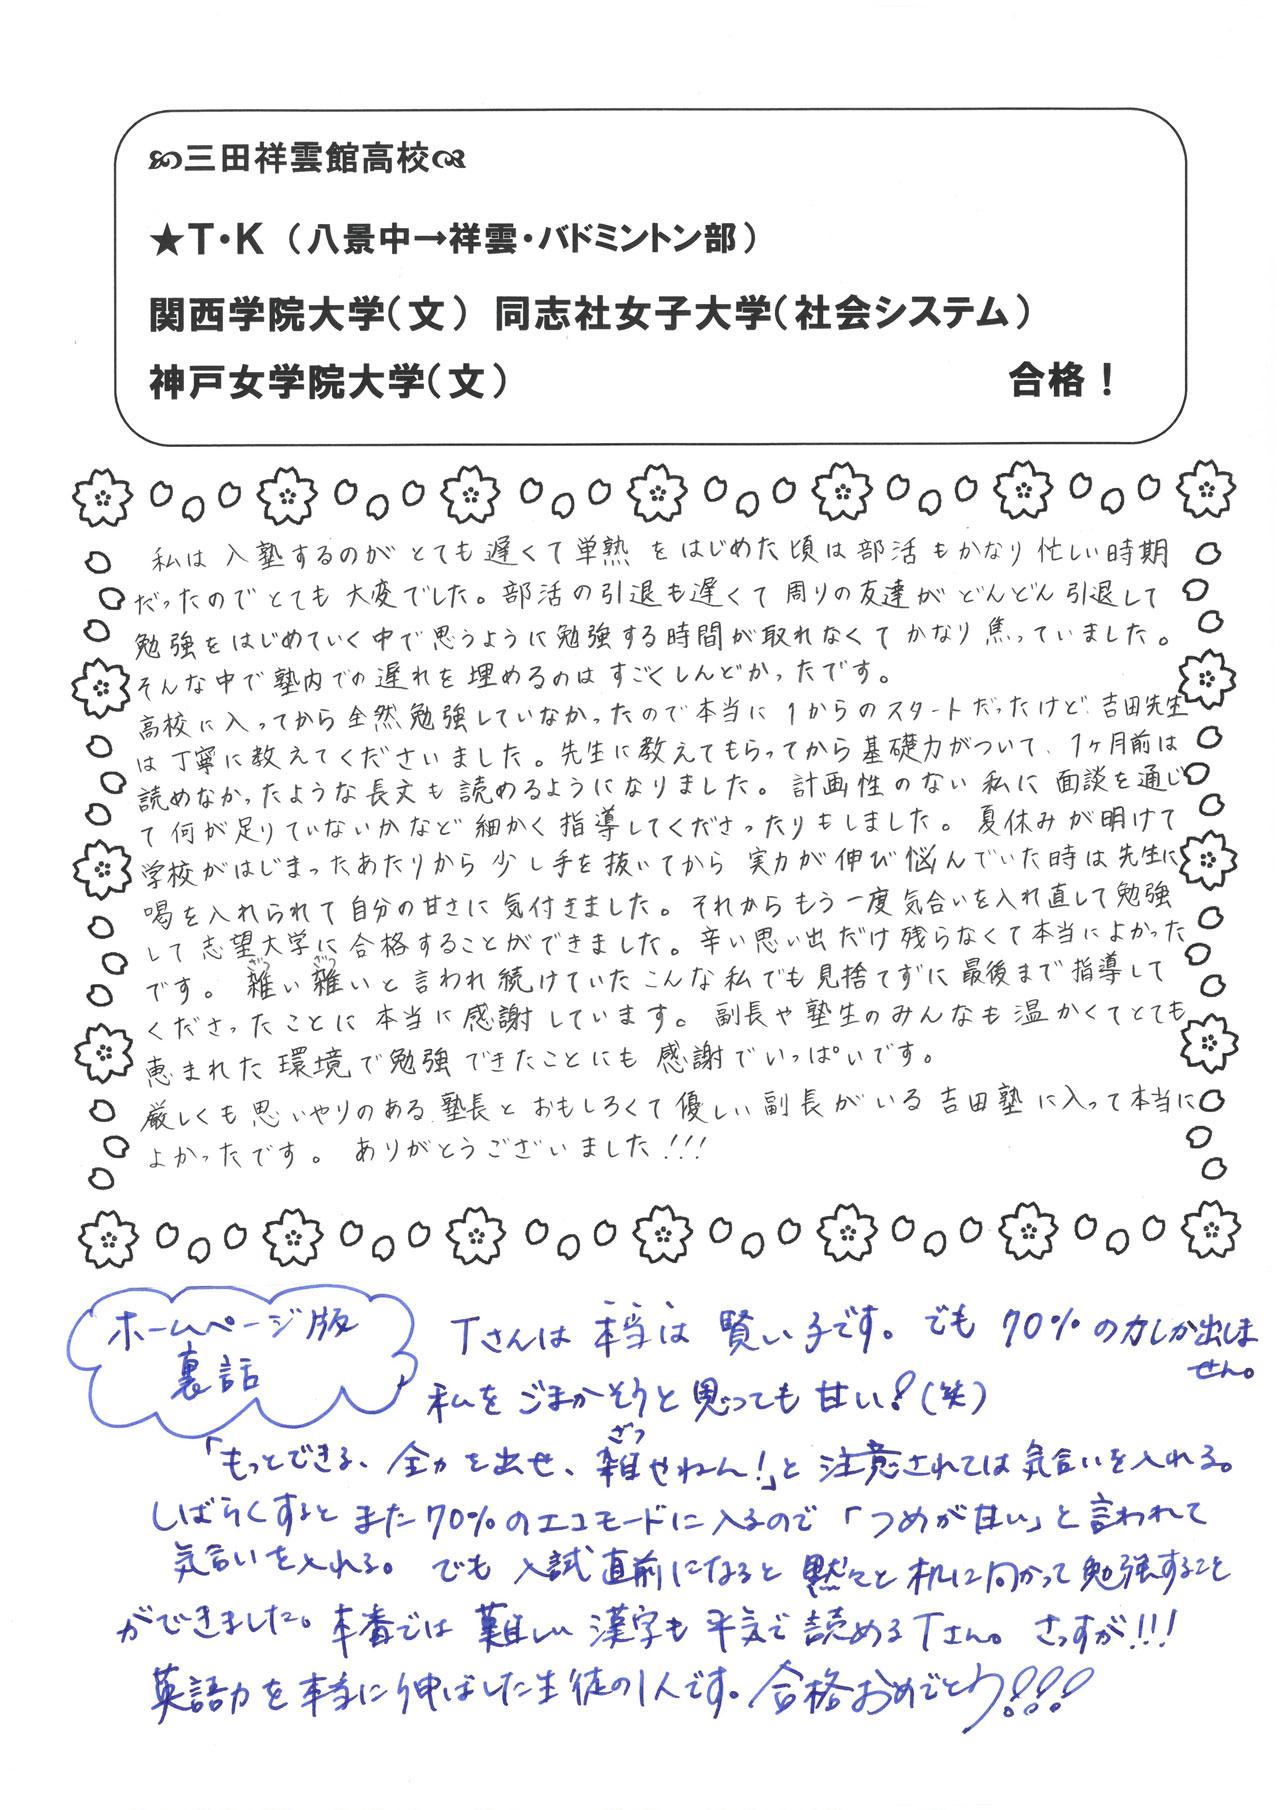 三田祥雲館高校
★T・K（八景中→祥雲・バドミントン部）
関西学院大学(文) 同志社女子大学(社会システム)
神戸女学院大学(文) 合格！
私は入塾するのがとても遅くて単熟をはじめた頃は部活もかなり忙しい時期
だったのでとても大変でした。部活の引退も遅くて周りの友達がどんどん引退して
勉強をはじめていく中で思うように勉強する時間が取れなくてかなり焦っていました。
そんな中で塾内での遅れを埋めるのはすごくしんどかったです。
高校に入ってから全然勉強していなかったので本当に1からのスタートだったけど、吉田先生
は丁寧に教えてくださいました。先生に教えてもらってから基礎力がついて、1ヶ月前は
読めなかったような長文も読めるようになりました。計画性のない私に面談を通じ
て何が足りていないかなど細かく指導してくださったりもしました。夏休みが明けて
学校がはじまったあたりから少し手を抜いてから実力が伸び悩んでいた時は先生に
喝を入れられて自分の甘さに気付きました。それからもう一度気合いを入れ直して勉強
して志望大学に合格することができました。辛い思い出だけ残らなくて本当によかった
ざつ ざつ
です。雑い雑いと言われ続けていたこんな私でも見捨てずに最後まで指導して
くださったことに本当に感謝しています。副長や塾生のみんなも温かくてとても
恵まれた環境で勉強できたことにも感謝でいっぱいです。
厳しくも思いやりのある塾長とおもしろくて優しい副長がいる吉田塾に入って本当に
よかったです。ありがとうございました!!!
ホームページ版
裏話
Tさんは本当は賢い子です。でも70%の力しか出しま
せん。
私をごまかそうと思っても甘い!(笑)
ざつ
「もっとできる、全力を出せ、雑やねん!」と注意されては気合いを入れる。
しばらくするとまた70%のエコモードに入るので「つめが甘い」と言われて
気合いを入れる。でも入試直前になると黙々と机に向かって勉強すること
ができました。本番では難しい漢字も平気で読めるTさん。さっすが!!!
英語力を本当に伸ばした生徒の1人です。合格おめでとう!!!